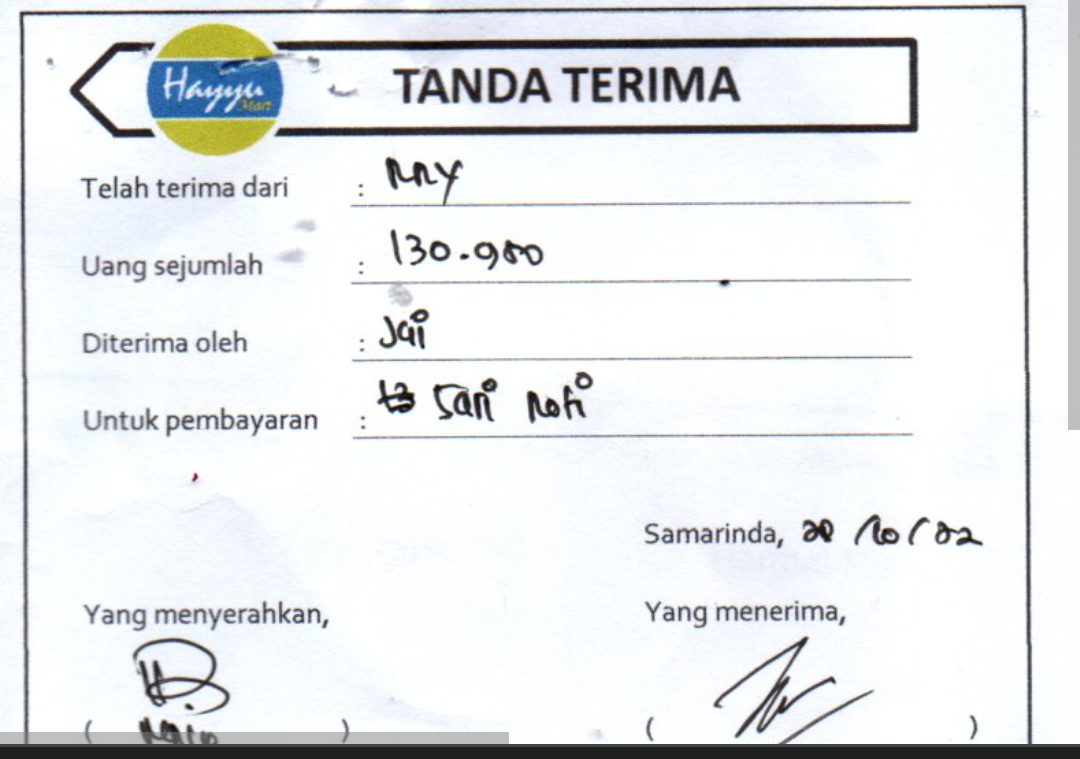 Hayyu
Mart
TANDA TERIMA
Telah terima dari :
Uang sejumlah : 130.900
Diterima oleh : Jai
Untuk pembayaran : Sari Roti
Samarinda, /10/22
Yang menyerahkan,
Yang menerima,
( )
( )